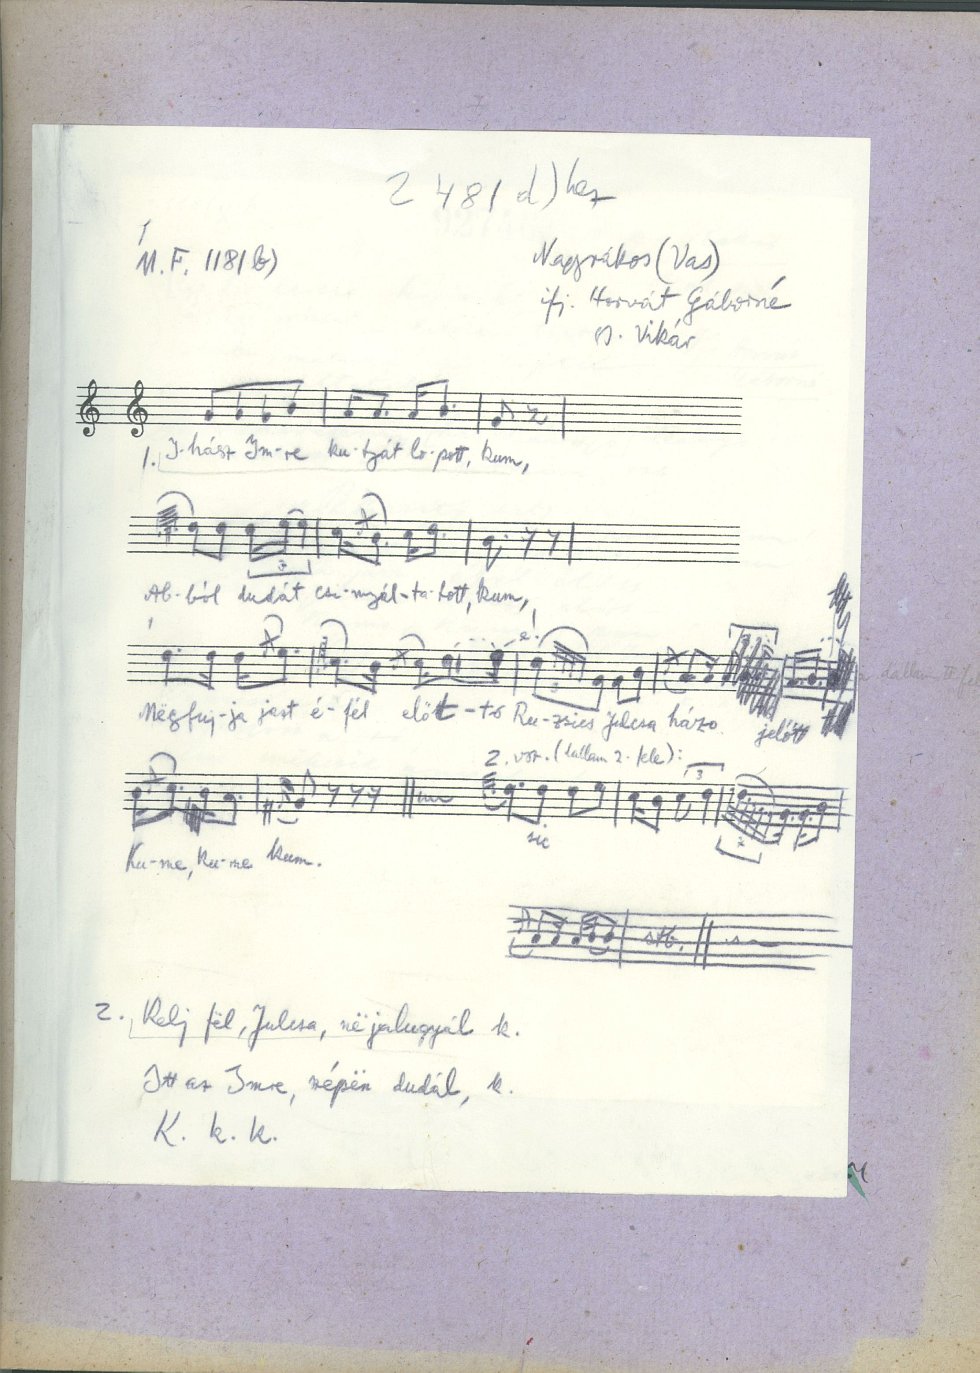 2481 d) hez
M.F. 1181 b)
Nagyrákos (Vas)
ifj. Horvát Gáborné
Vikár
1. I-hász Im-re ku-tyját lo-pott, kum,
Ab-ból dudát csi-nyál-ta-tott, kum,
Mëgfuj-ja jest é-fél előtt-tő Ru-zsics Julcsa házo jelött
2. vsz. (dallam 2. fele):
Ku-me, ku-me kum.
sic
stb.
2. Kelj fël, Julcsa, në jalugyál k.
Itt az Imre, népën dudál, k.
K. k. k.